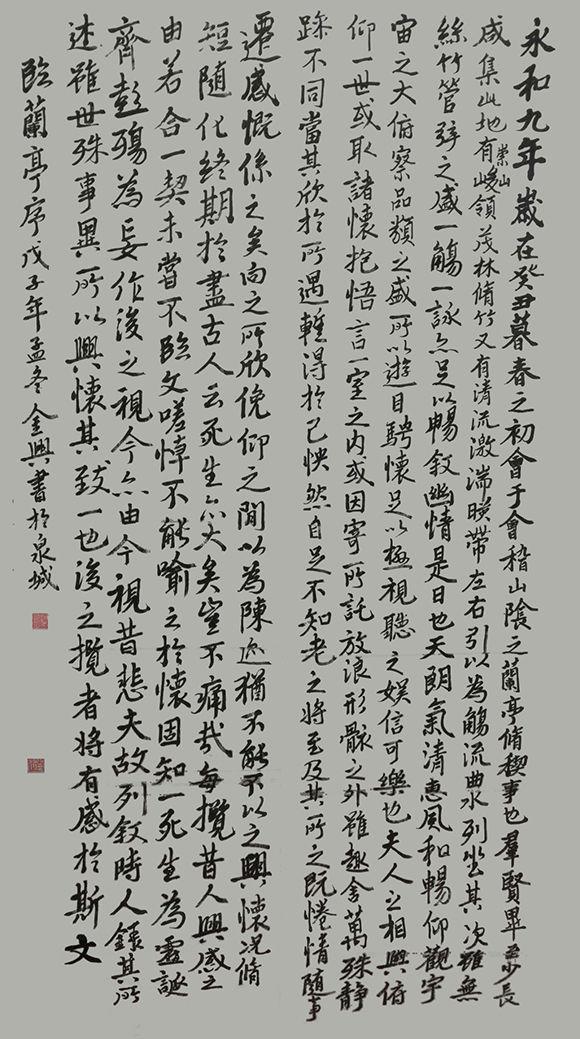 永和九年歲在癸丑暮春之初會于會稽山陰之蘭亭脩稧事也羣賢畢至少長
咸集此地有崇山峻領茂林脩竹又有清流激湍暎帶左右引以為觴流曲水列坐其次雖無
絲竹管弦之盛一觴一詠亦足以暢敘幽情是日也天朗氣清惠風和暢仰觀宇
宙之大俯察品類之盛所以遊目騁懷足以極視聽之娛信可樂也夫人之相與俯
仰一世或取諸懷抱悟言一室之內或因寄所託放浪形骸之外雖趣舍萬殊靜
躁不同當其欣於所遇蹔得於己怏然自足不知老之將至及其所之既惓情隨事
遷感慨係之矣向之所欣俛仰之間以為陳迹猶不能不以之興懷況脩
短隨化終期於盡古人云死生亦大矣豈不痛哉每攬昔人興感之
由若合一契未嘗不臨文嗟悼不能喻之於懷固知一死生為虛誕
齊彭殤為妄作後之視今亦由今視昔悲夫故列敘時人錄其所
述雖世殊事異所以興懷其致一也後之攬者將有感於斯文
臨蘭亭序戊子年孟冬金興書於泉城